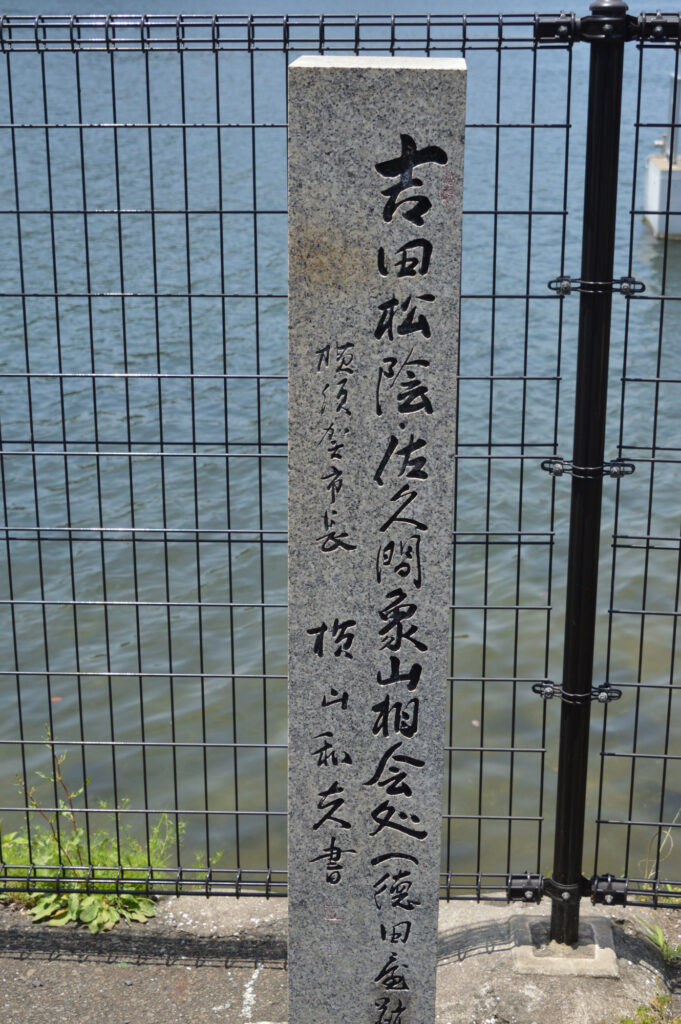 吉田松陰・佐久間象山相会処(徳田屋跡
横須賀市長 横山和夫書